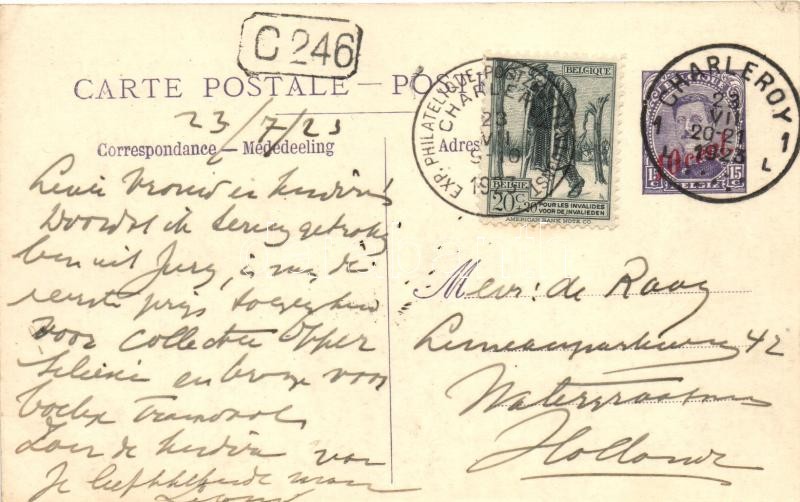 C 246
CARTE POSTALE — POST
23/7/23
Correspondance — Mededeeling
Adres
Lieve Vrouw en kinders
Voordat ik terug getrokken
ben uit Jury, is mij de
eerste prijs toegekend
voor collectie Opper
Silesie en brons voor
boekje
Zoen de kinders van
Je liefhebbende man
EXP. PHILATELIQUE POST
CHARLEROI
23
VII
1923
BELGIQUE
BELGIË
20c+20c
POUR LES INVALIDES
VOOR DE INVALIEDEN
AMERICAN BANK NOTE CO.
CHARLEROY
1 1
VII
20-21
1923
L
BELGIQUE
15 C
15 C
BELGIË
Mevr: de Raay
42
Watergraafsmeer
Holland